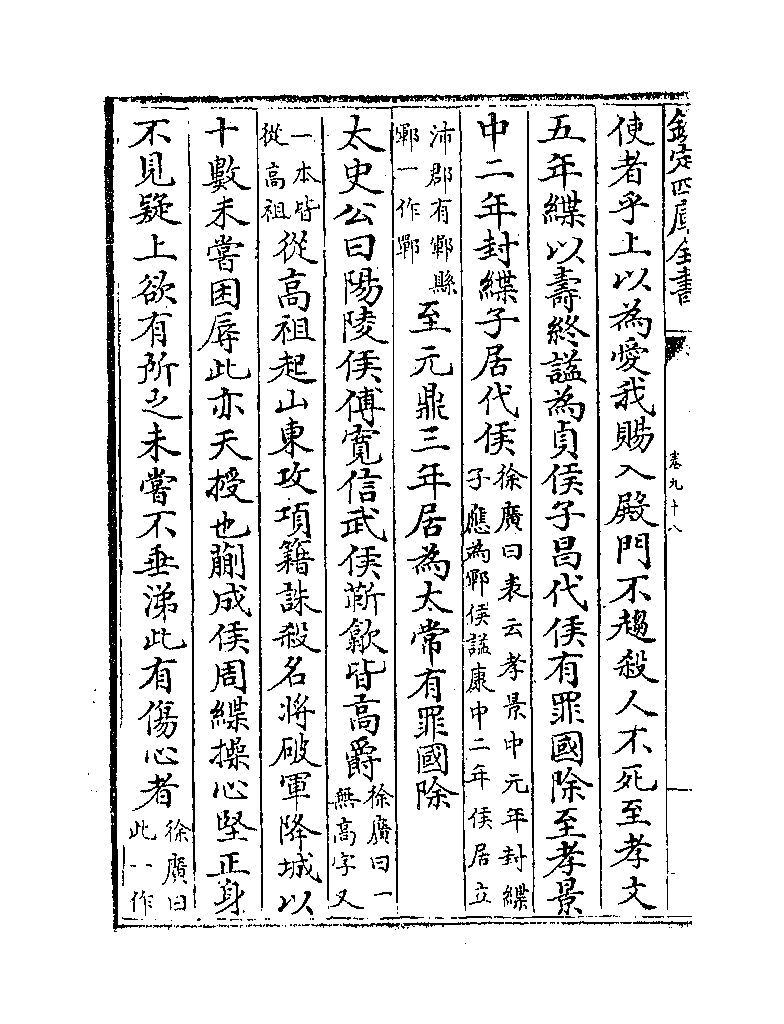 欽定四庫全書
卷九十八
使者乎上以為愛我賜入殿門不趨殺人不死至孝文
五年緤以壽終諡為貞侯子昌代侯有罪國除至孝景
中二年封緤子居代侯徐廣曰表云孝景中元年封緤
子應為鄲侯諡康中二年侯居立
沛郡有鄲縣
鄲一作鄲至元鼎三年居為太常有罪國除
太史公曰陽陵侯傅寛信武侯靳歙皆高爵徐廣曰一
無高字又
一本皆
從高祖從高祖起山東攻項籍誅殺名將破軍降城以
十數未嘗困辱此亦天授也蒯成侯周緤操心堅正身
不見疑上欲有所之未嘗不垂涕此有傷心者徐廣曰
此一作